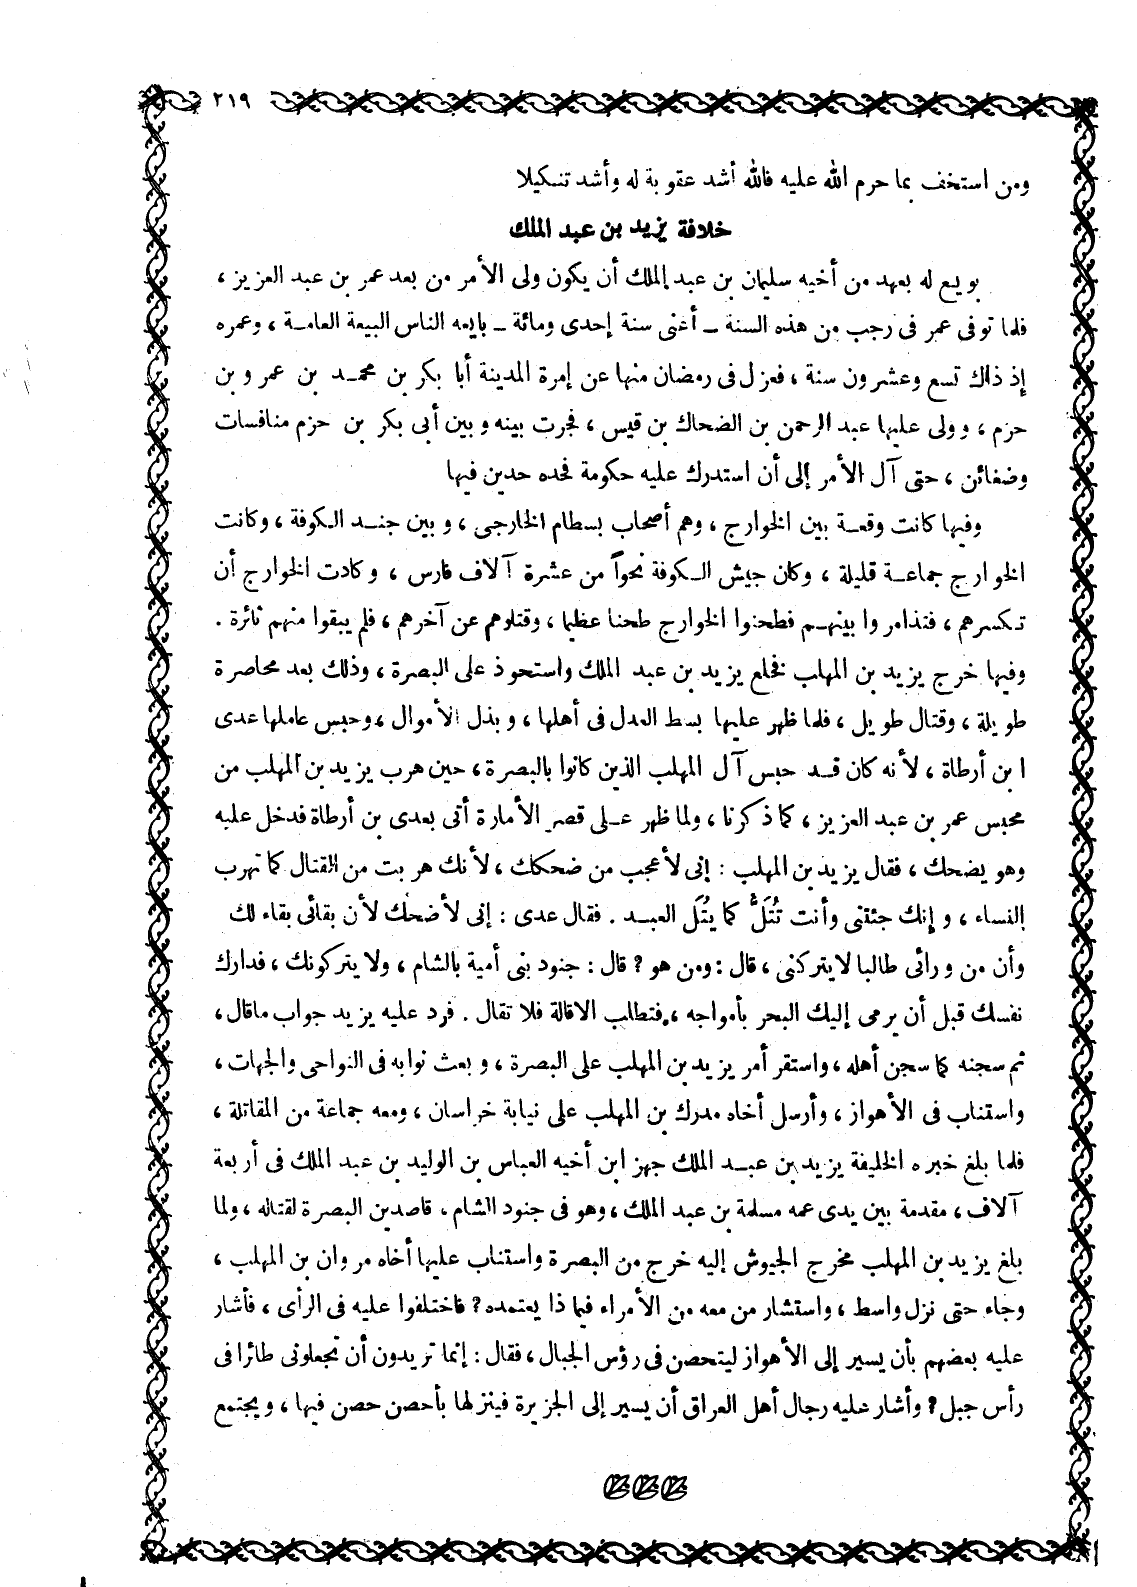 ٢١٩
ومن استخف بما حرم الله عليه فالله أشد عقوبة له وأشد تنكيلا
خلافة يزيد بن عبد الملك
بويع له بعهد من أخيه سليمان بن عبد الملك أن يكون ولى الأمر من بعد عمر بن عبد العزيز ،
فلما توفى عمر فى رجب من هذه السنة ــ أعنى سنة إحدى ومائة ــ بايعه الناس البيعة العامة ، وعمره
إذ ذاك تسع وعشرون سنة ، فعزل فى رمضان منها عن إمرة المدينة أبا بكر بن محمد بن عمرو بن
حزم ، وولى عليها عبد الرحمن بن الضحاك بن قيس ، فجرت بينه وبين أبى بكر بن حزم منافسات
وضغائن ، حتى آل الأمر إلى أن استدرك عليه حكومة فحده حدين فيها
وفيها كانت وقعة بين الخوارج ، وهم أصحاب بسطام الخارجى ، وبين جند الكوفة ، وكانت
الخوارج جماعة قليلة ، وكان جيش الكوفة نحواً من عشرة آلاف فارس ، وكادت الخوارج أن
تكسرهم ، فتذامروا بينهم فطحنوا الخوارج طحنا عظيما ، وقتلوهم عن آخرهم ، فلم يبقوا منهم ثائرة .
وفيها خرج يزيد بن المهلب فخلع يزيد بن عبد الملك واستحوذ على البصرة ، وذلك بعد محاصرة
طويلة ، وقتال طويل ، فلما ظهر عليها بسط العدل فى أهلها ، وبذل الأموال ، وحبس عاملها عدى
ابن أرطاة ، لأنه كان قد حبس آل المهلب الذين كانوا بالبصرة ، حين هرب يزيد بن المهلب من
محبس عمر بن عبد العزيز ، كما ذكرنا ، ولما ظهر على قصر الأمارة أتى بعدى بن أرطاة فدخل عليه
وهو يضحك ، فقال يزيد بن المهلب : إنى لأعجب من ضحكك ، لأنك هربت من القتال كما تهرب
النساء ، وإنك جئتنى وأنت تُتَلُّ كما يُتَل العبد . فقال عدى : إنى لأضحك لأن بقائى بقاء لك
وأن من ورائى طالبا لا يتركنى ، قال : ومن هو ؟ قال : جنود بنى أمية بالشام ، ولا يتركونك ، فدارك
نفسك قبل أن يرمى إليك البحر بأمواجه ، فتطلب الاقالة فلا تقال . فرد عليه يزيد جواب ماقال ،
ثم سجنه كما سجن أهله ، واستقر أمر يزيد بن المهلب على البصرة ، وبعث نوابه فى النواحى والجهات ،
واستناب فى الأهواز ، وأرسل أخاه مدرك بن المهلب على نيابة خراسان ، ومعه جماعة من المقاتلة ،
فلما بلغ خبره الخليفة يزيد بن عبد الملك جهز ابن أخيه العباس بن الوليد بن عبد الملك فى أربعة
آلاف ، مقدمة بين يدى عمه مسلمة بن عبد الملك ، وهو فى جنود الشام ، قاصدين البصرة لقتاله ، ولما
بلغ يزيد بن المهلب مخرج الجيوش إليه خرج من البصرة واستناب عليها أخاه مروان بن المهلب ،
وجاء حتى نزل واسط ، واستشار من معه من الأمراء فيما ذا يعتمده ؟ فاختلفوا عليه فى الرأى ، فأشار
عليه بعضهم بأن يسير إلى الأهواز ليتحصن فى رؤس الجبال ، فقال : إنما تريدون أن تجعلونى طائرا فى
رأس جبل ؟ وأشار عليه رجال أهل العراق أن يسير إلى الجزيرة فينزلها بأحصن حصن فيها ، ويجتمع